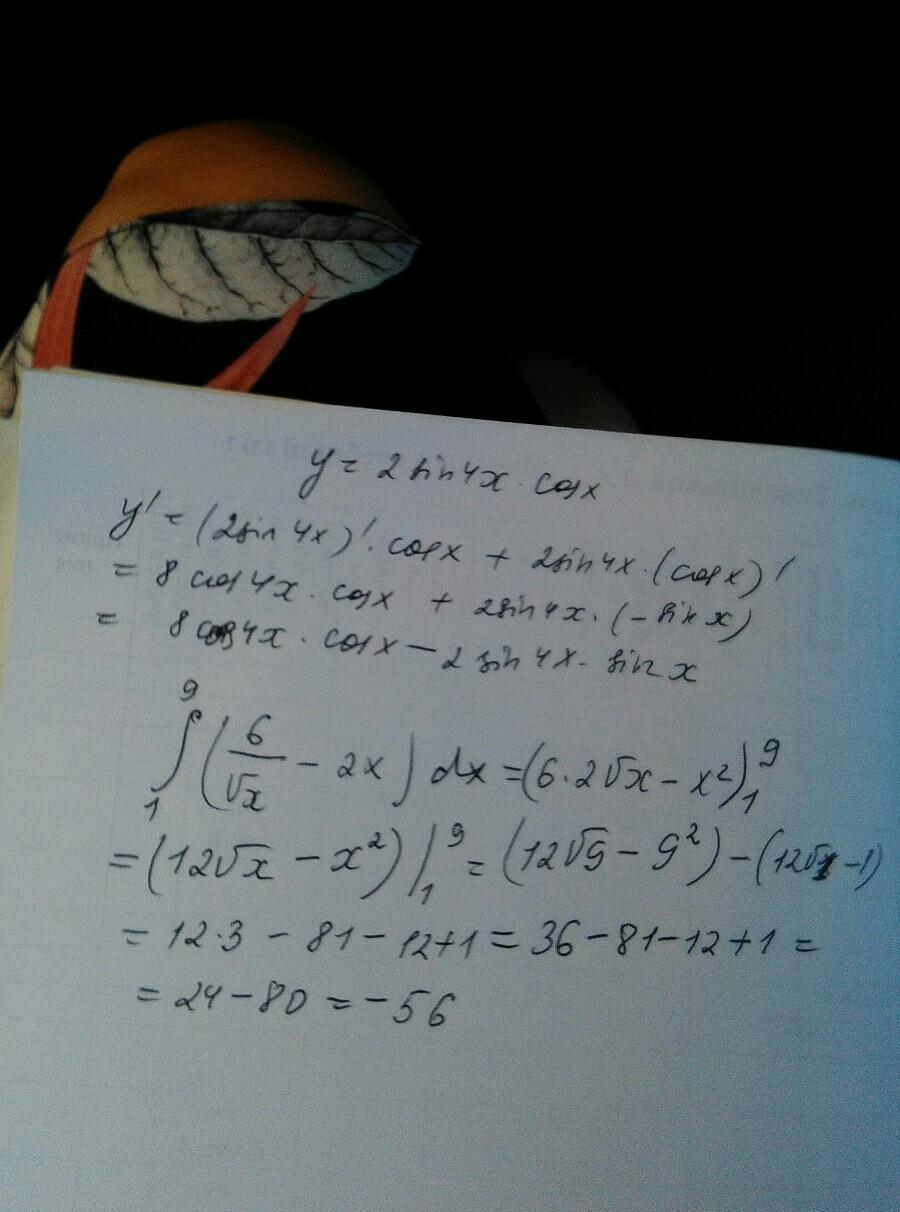 y = 2 sin4x · cosx
y' = (2sin 4x)' · cosx + 2sin4x · (cosx)'
= 8 cos4x · cosx + 2sin4x · (-sin x)
= 8 cos4x · cosx - 2 sin4x · sin x
∫₁⁹ (6/√x - 2x) dx = (6·2√x - x²)₁⁹
= (12√x - x²)|₁⁹ = (12√9 - 9²) - (12√1 - 1)
= 12·3 - 81 - 12+1 = 36-81-12+1 =
= 24-80 = -56